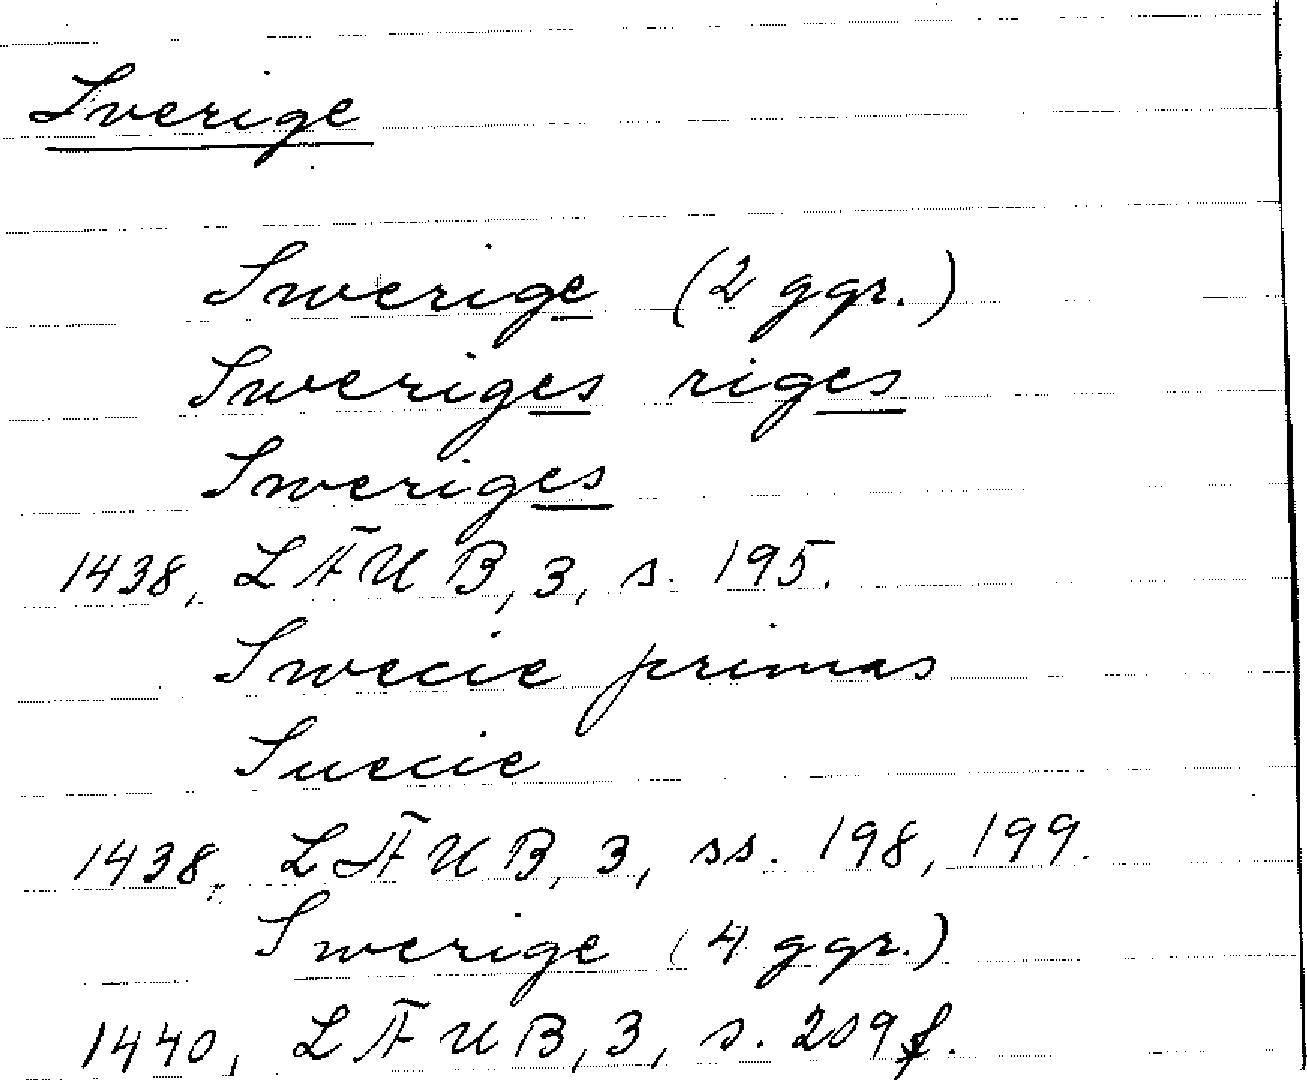 Sverige
Swerige (2 ggr.)
Sweriges riges
Sweriges
1438, LFUB, 3, s. 195.
Swecie primas
Suecie
1438, LFUB, 3, ss. 198, 199.
Swerige (4 ggr.)
1440, LFUB, 3, s. 209 f.